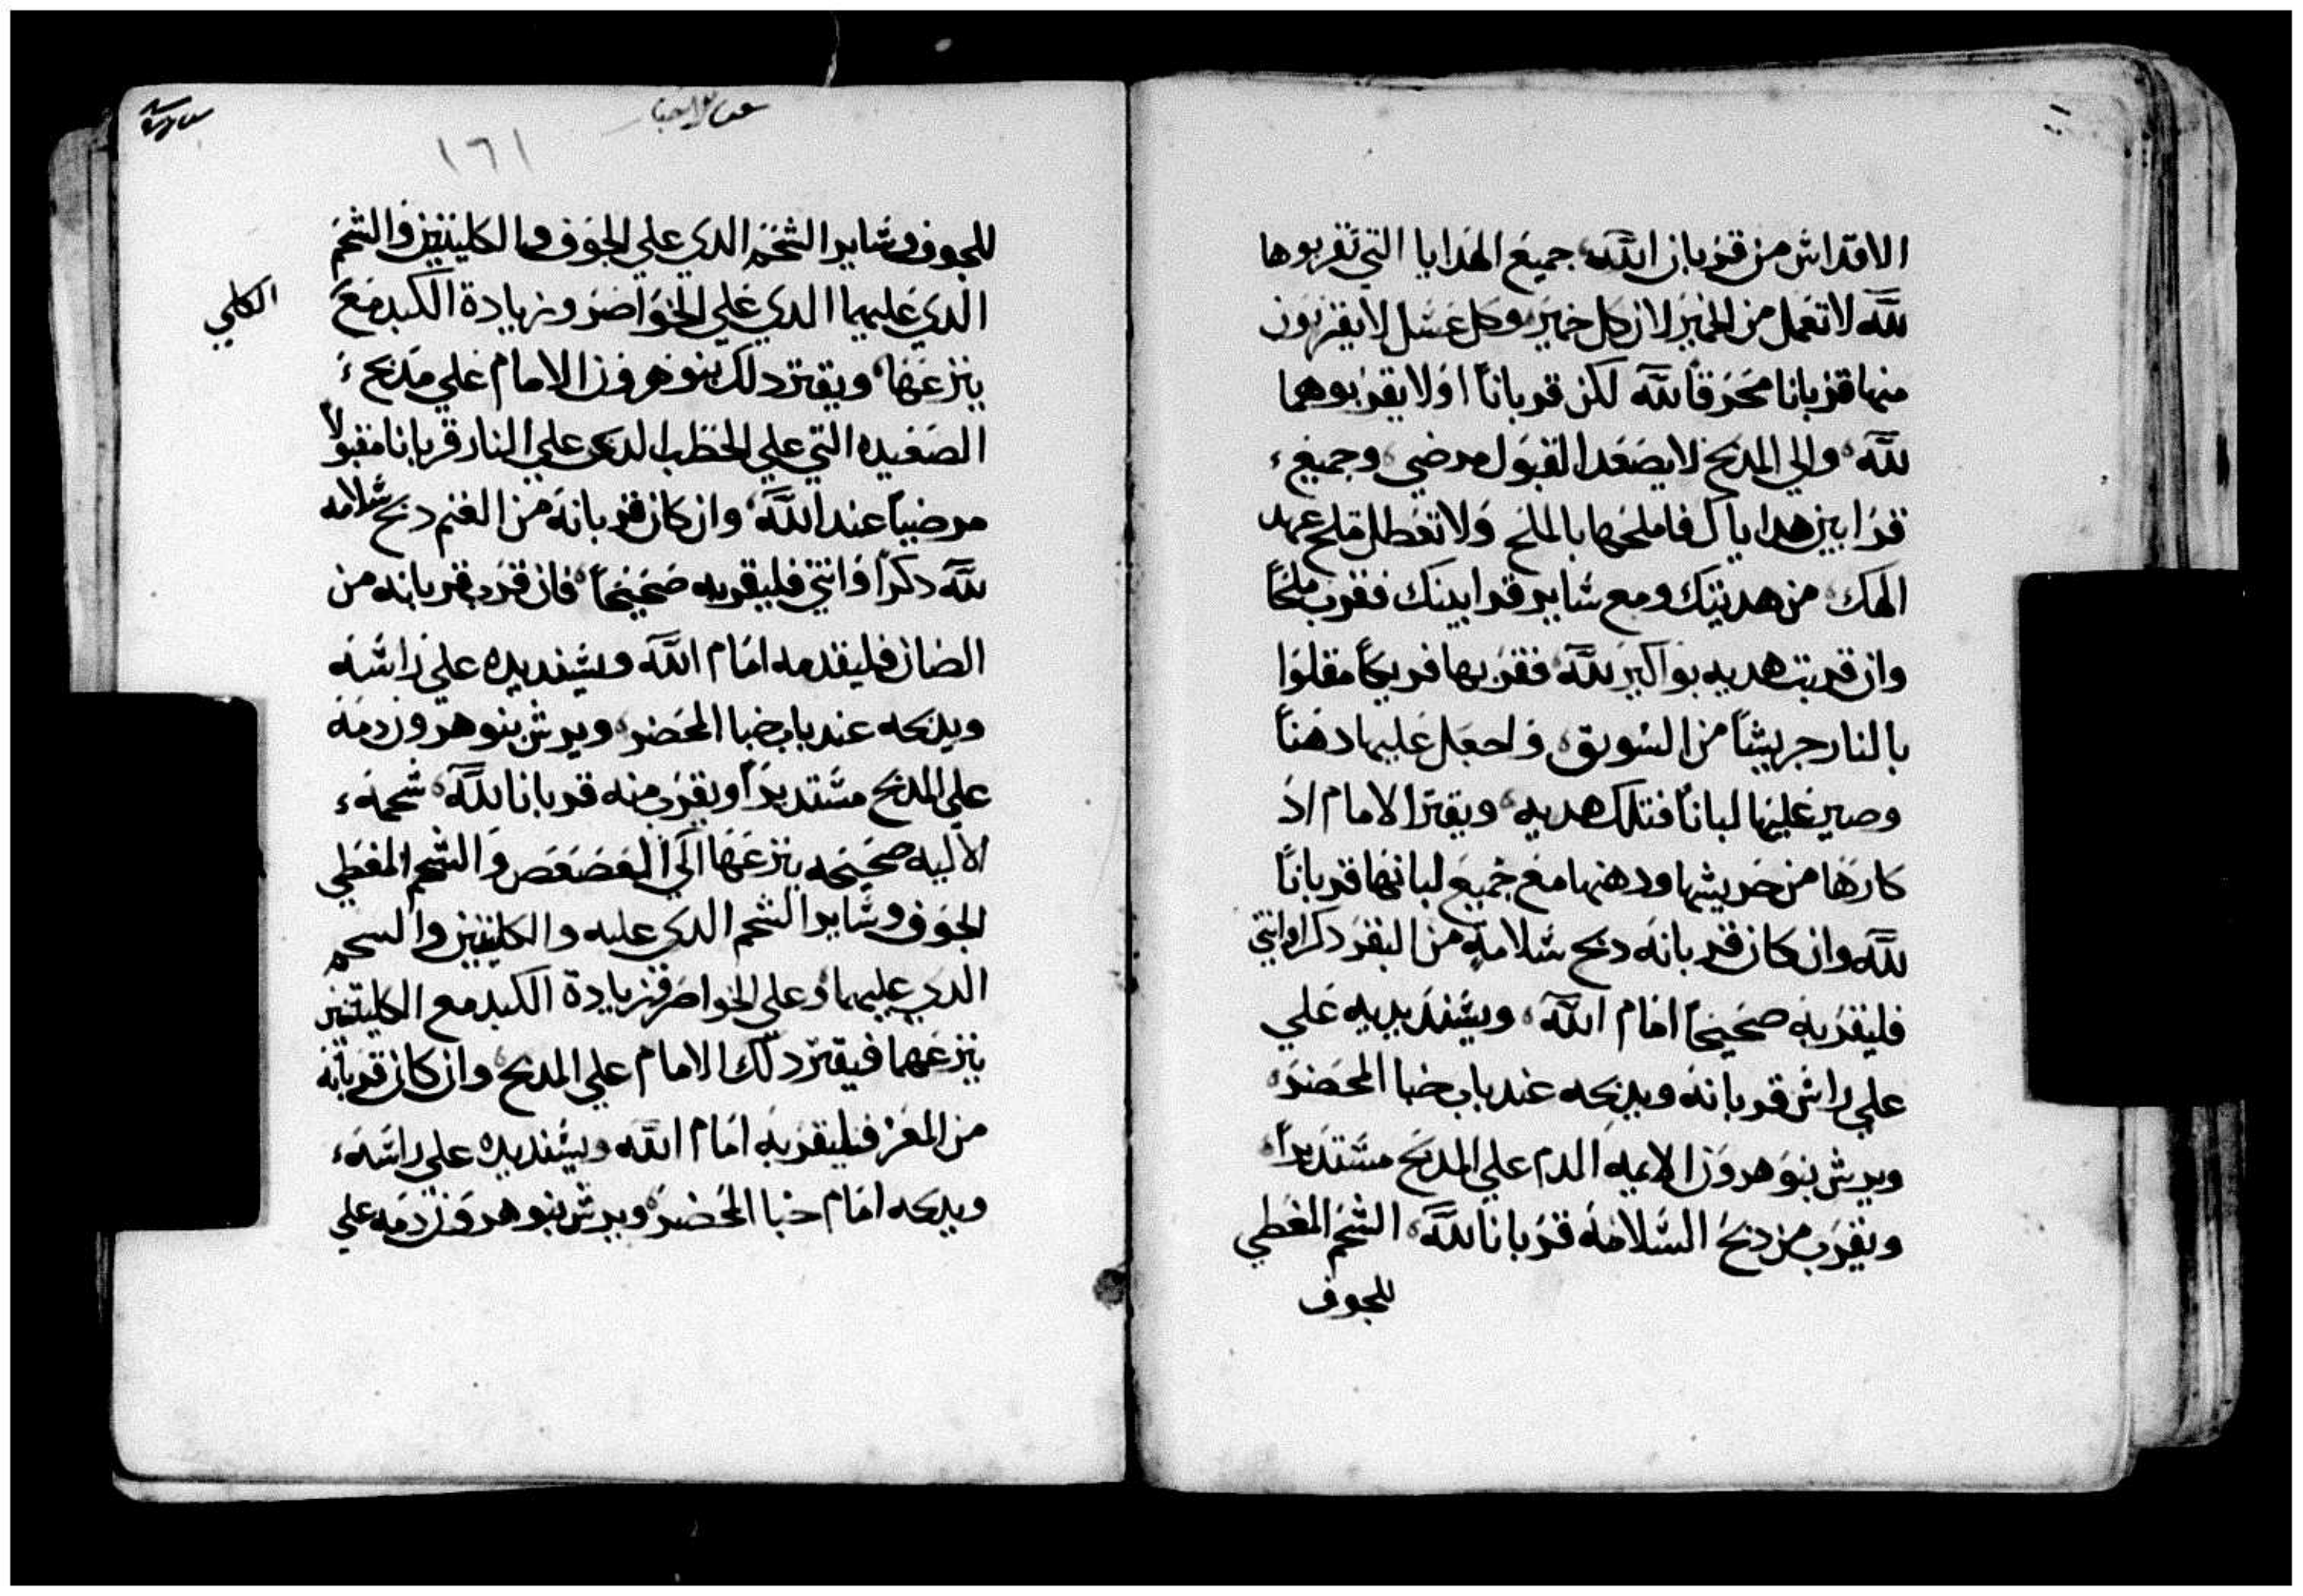 الاقداش من قربان الله جميع الهدايا التي تقربوها
لله لا تعمل من الخمير لان كل خمير وكل عشل لا يقربون
منها قربانا محرقا لله لكن قربانا اولا يقربوهما
لله والي المدبح لا يصعد القبول مرضي وجميع
قرابين هداياك فاملحها بالملح ولا تعطل ملح عهد
الهك من هديتك ومع شاير قرابينك فقرب ملحا
وان قربت هديه بواكير لله فقربها فريكا مقلوا
بالنار جريشا من السويق واجعل عليها دهنا
وصير عليها لبانا فتلك هديه ويقتر الامام اد
كارها من جريشها ودهنها مع جميع لبانها قربانا
لله وان كان قربانه دبح شلامه من البقر دكرا او انتي
فليقربه صحيحا امام الله ويشند يديه علي
علي راش قربانه ويدبحه عند باب خبا المحضر
ويرش بنو هرون الايمه الدم علي المدبح مشتديرا
ويقرب من دبح الشلامه قربانا لله الشحم المغطي
للجوف
١٦١
للجوف وشاير الشحم الدي علي الجوف والكليتين والشحم
الدي عليهما الدي علي الخواصر وزيادة الكبد مع
الكلي
ينزعها ويقتر دلك بنو هرون الامام علي مدبح
الصعيده التي علي الحطب الدي علي النار قربانا مقبولا
مرضيا عند الله وان كان قربانه من الغنم دبح شلامه
لله دكرا او انتي فليقربه صحيحا فان قرب قربانه من
الضان فليقدمه امام الله ويشند يده علي راشه
ويدبحه عند باب خبا المحضر ويرش بنو هرون دمه
علي المدبح مشتديرا ويقرب منه قربانا لله شحمه
الاليه صحيحه ينزعها الي العصعص والشحم المغطي
الجوف وشاير الشحم الدي عليه والكليتين والسحم
الدي عليهما وعلي الخواصر وزيادة الكبد مع الكليتين
ينزعهما فيقتر دلك الامام علي المدبح وان كان قربانه
من المعز فليقربه امام الله ويشند يده علي راشه
ويدبحه امام خبا المحضر ويرش بنو هرون دمه علي